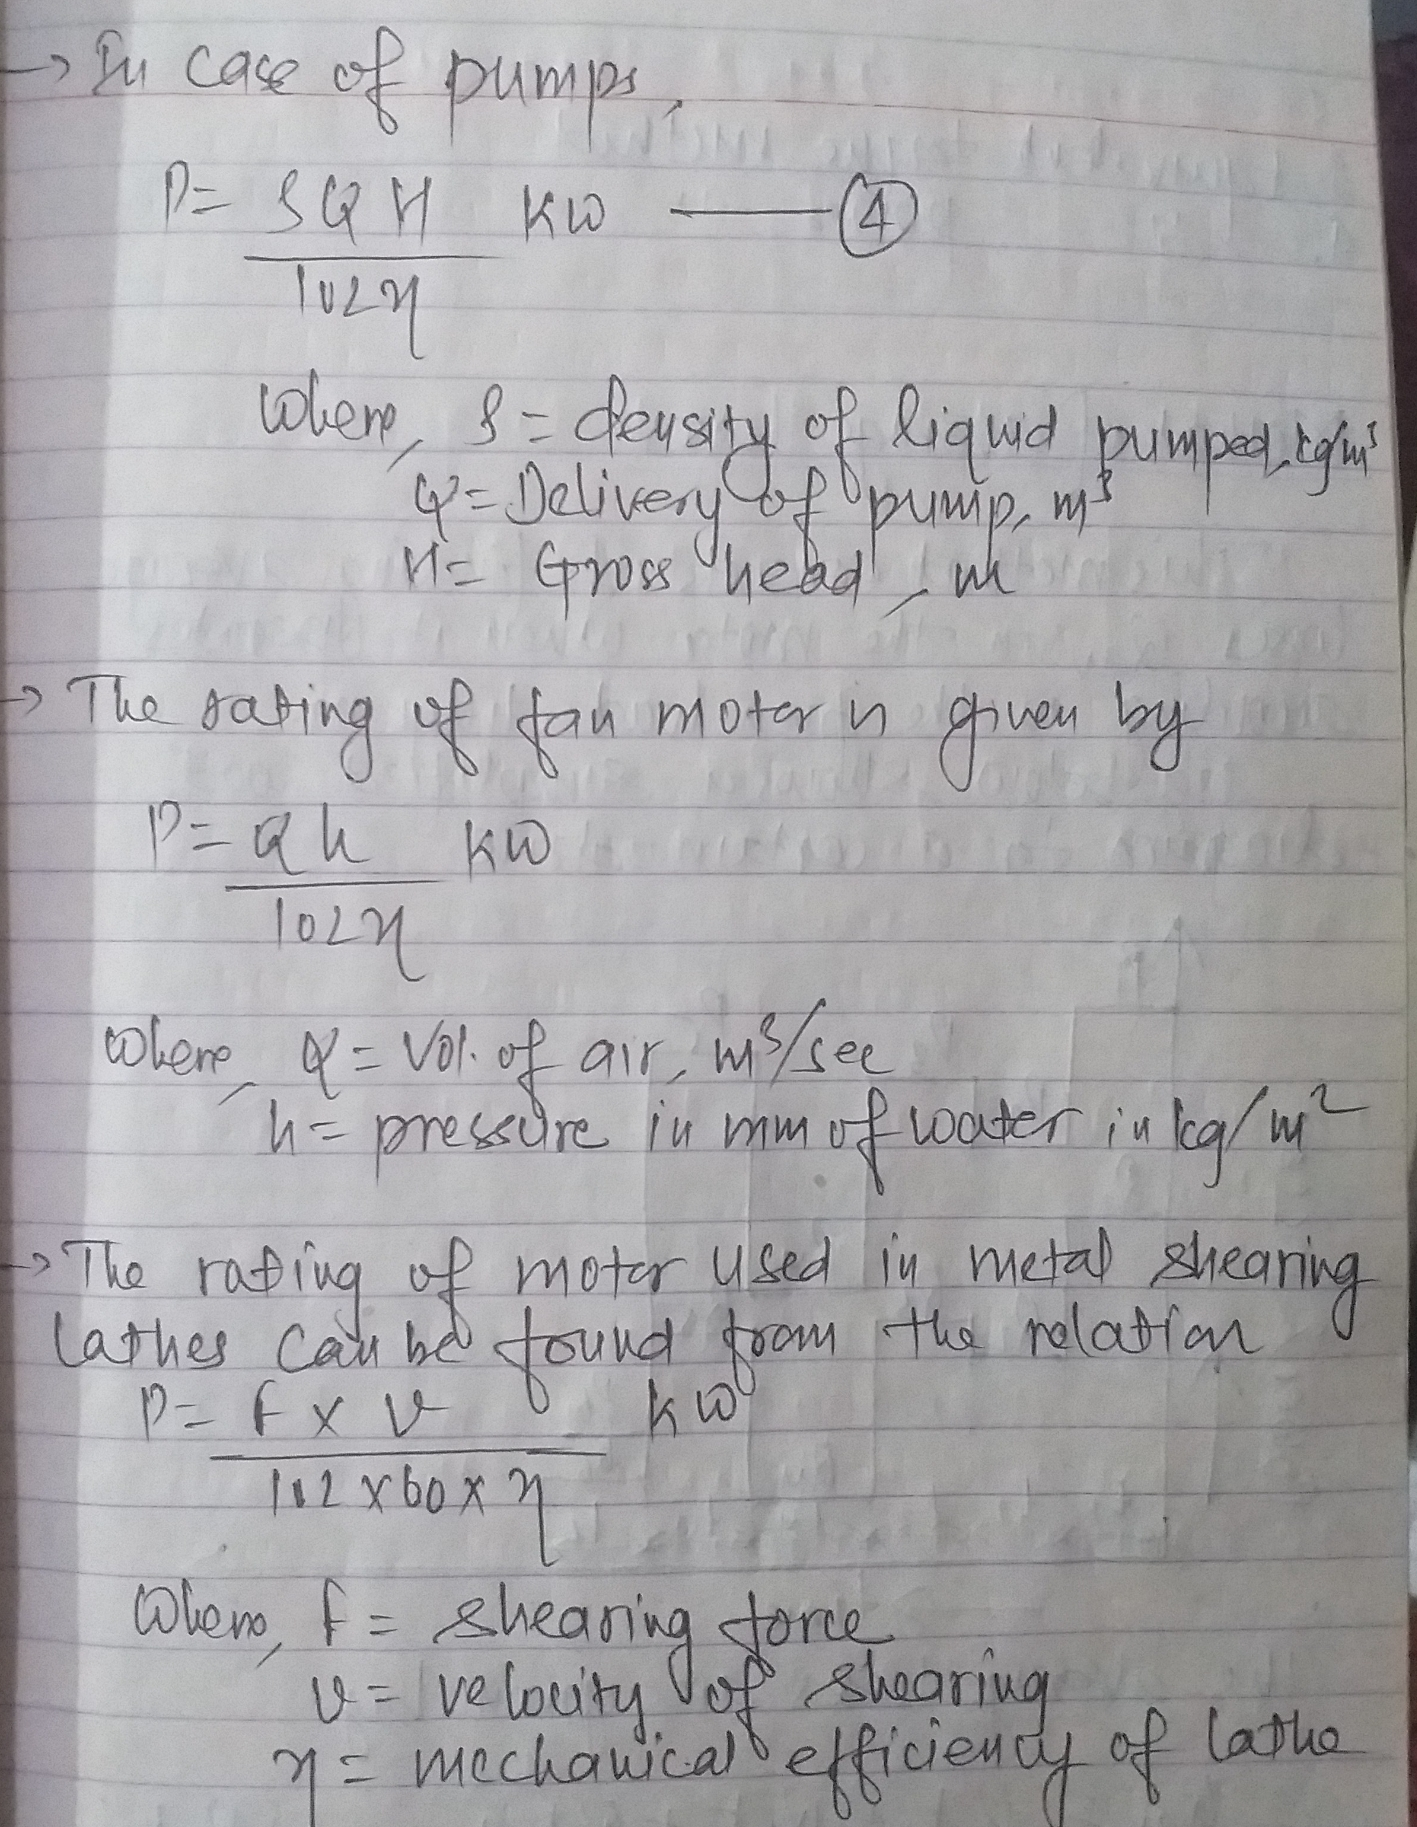 → In case of pumps,
P = ρQH KW —— ④
102η
Where, ρ = density of liquid pumped, kg/m³
Q = Delivery of pump, m³
H = Gross head, m
→ The rating of fan motor is given by
P = Qh KW
102η
where, Q = Vol. of air, m³/sec
h = pressure in mm of water in kg/m²
→ The rating of motor used in metal shearing
lathes can be found from the relation
P = F × v KW
102 × 60 × η
Where, F = shearing force
v = velocity of shearing
η = mechanical efficiency of lathe